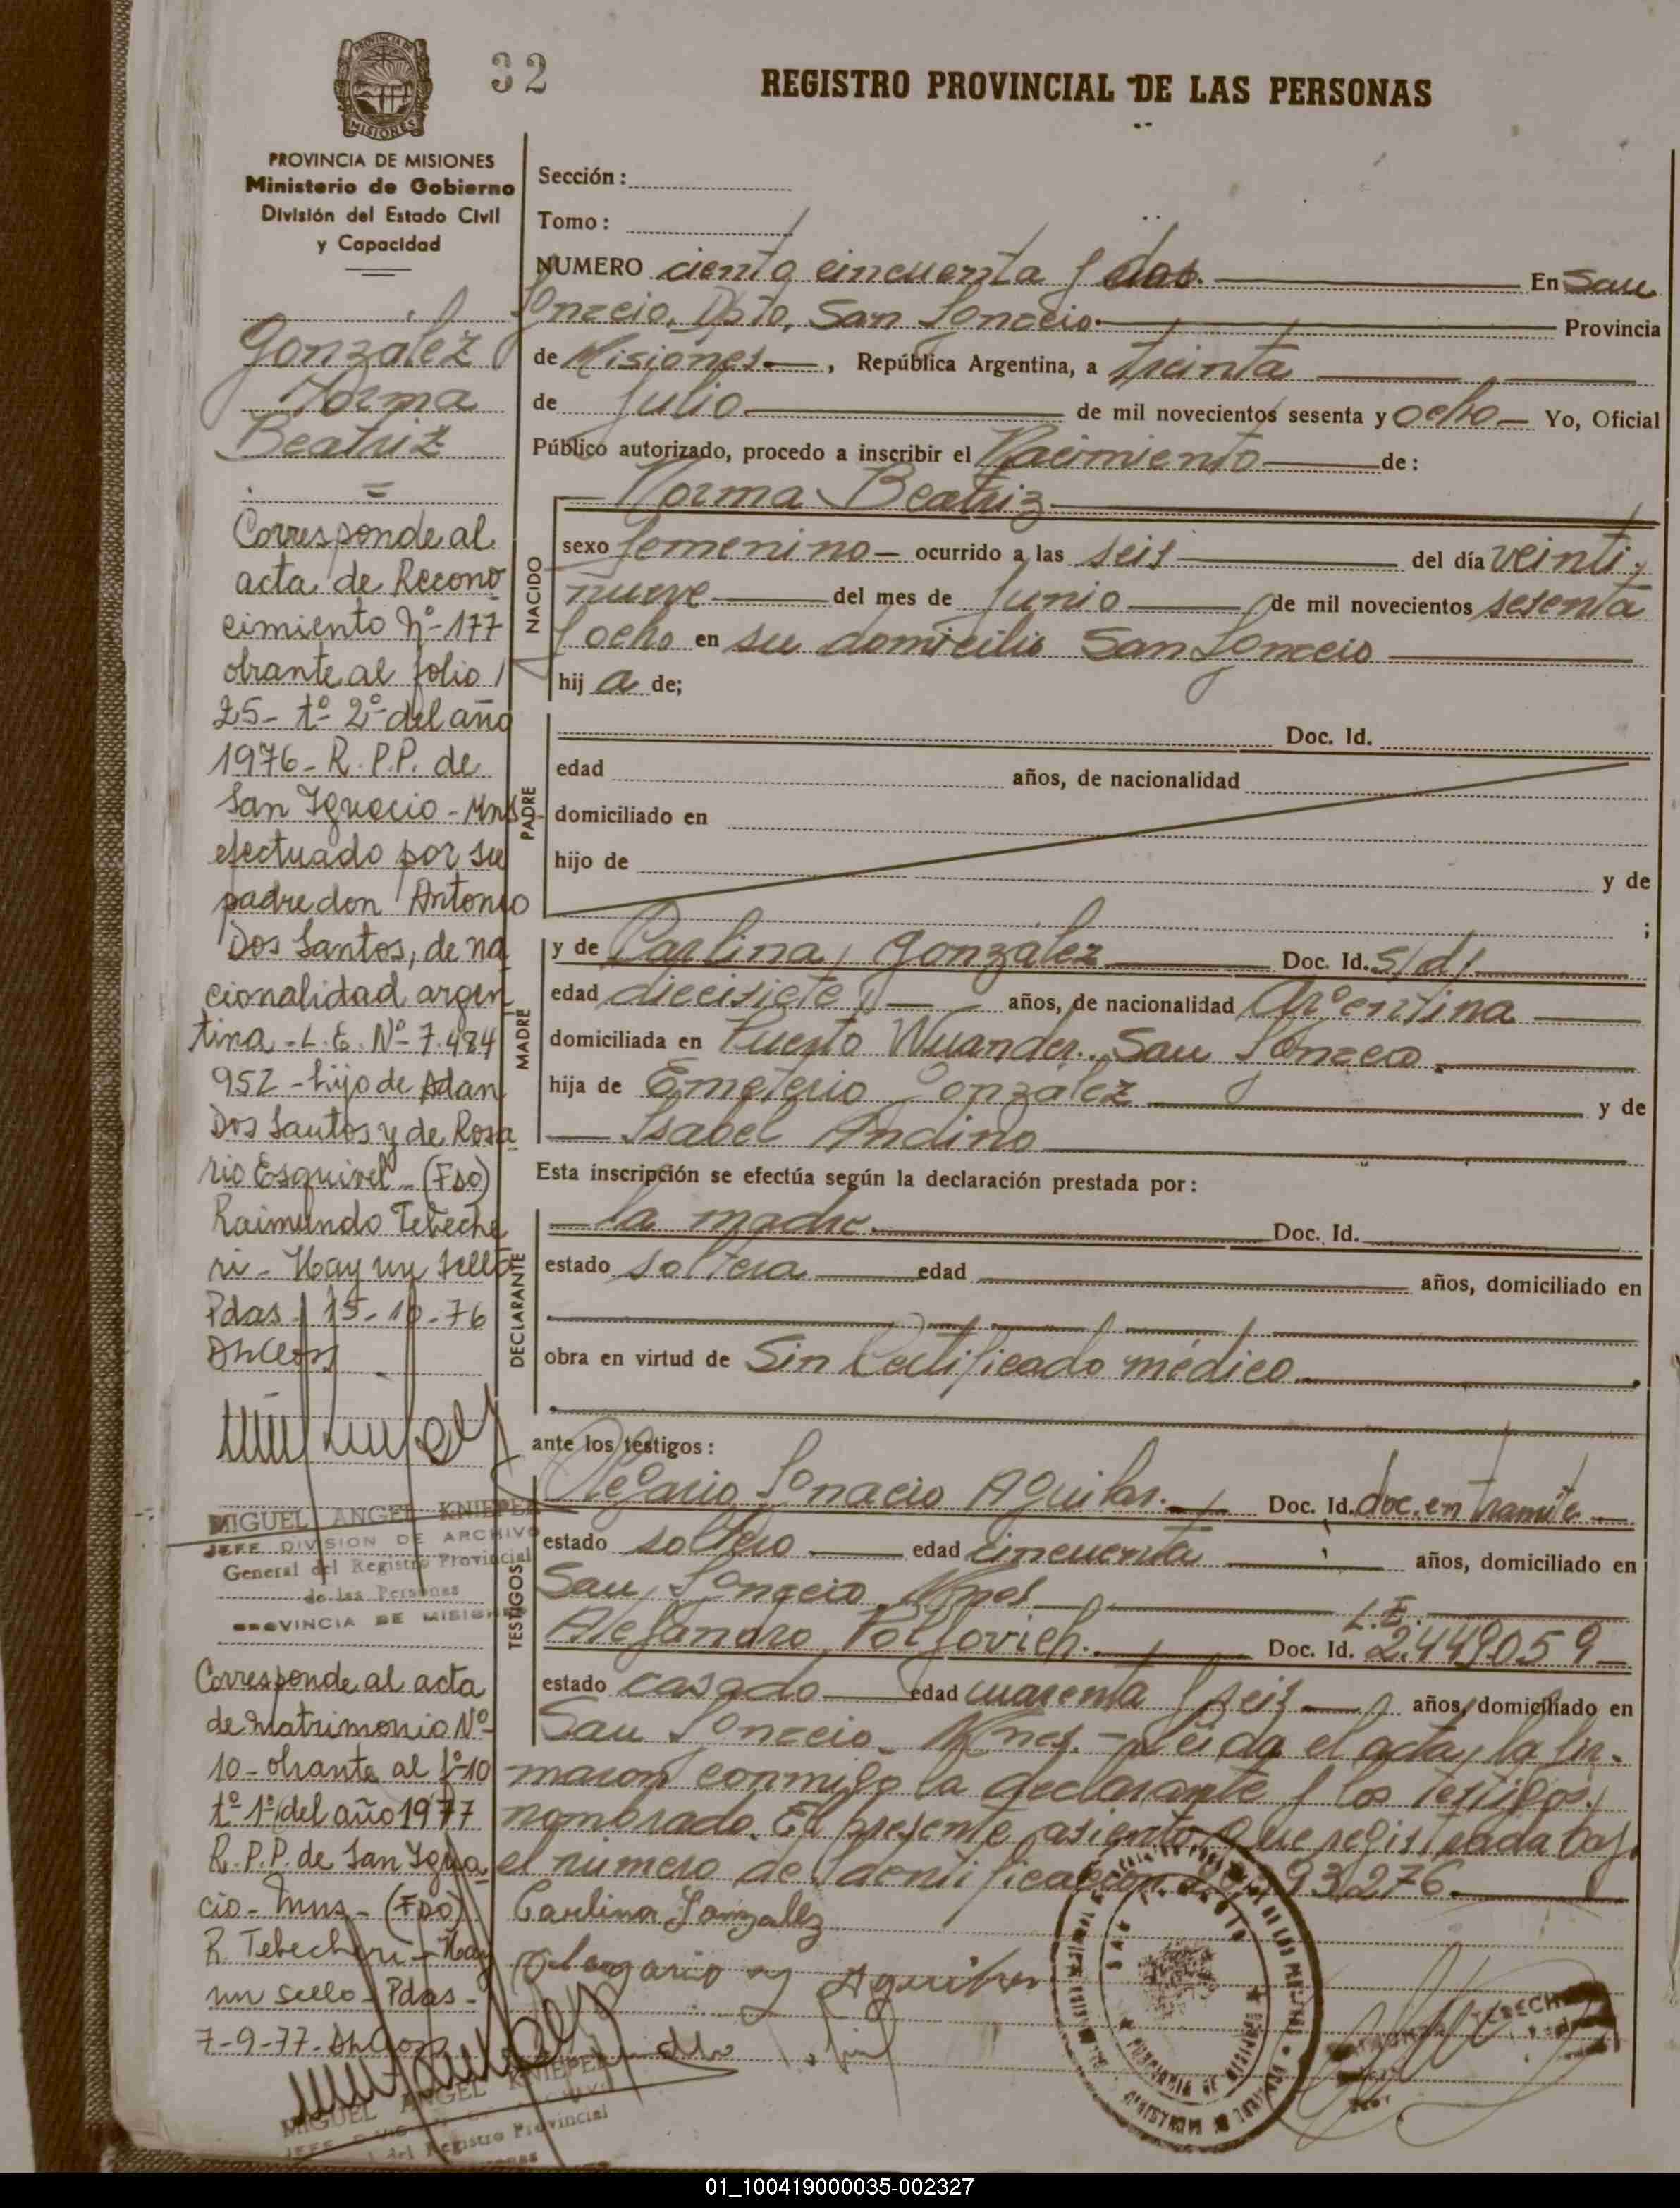 32
REGISTRO PROVINCIAL DE LAS PERSONAS
PROVINCIA DE MISIONES
Ministerio de Gobierno
División del Estado Civil
y Capacidad
González
Norma
Beatriz
Corresponde al
acta de Recono
cimiento Nº 177
obrante al folio
25- tº 2º del año
1976- R. P.P. de
San Ignacio - Mns
efectuado por su
padre don Antonio
Dos Santos, de na
cionalidad argen
tina - L. E. Nº 7.484
952 - hijo de Adan
Dos Santos y de Rosa
rio Esquivel - (Fdo)
Raimundo Tebeche
ri - Hay un sello
Pdas - 15-10-76
MIGUEL ANGEL KNIEPER
JEFE DIVISION DE ARCHIVO
General del Registro Provincial
de las Personas
PROVINCIA DE MISIONES
Corresponde al acta
de matrimonio Nº
10- obrante al fº 10
tº 1º del año 1977
R. P.P. de San Igna
cio - Mns - (Fdo)
R. Tebecheri - Hay
un sello - Pdas -
7-9-77-
MIGUEL ANGEL KNIEPER
del Registro Provincial
Sección :
Tomo :
NUMERO ciento cincuenta y dos. En San
Ignacio, Dpto, San Ignacio. Provincia
de Misiones. , República Argentina, a treinta
de Julio de mil novecientos sesenta y ocho Yo, Oficial
Público autorizado, procedo a inscribir el Nacimiento de :
Norma Beatriz
NACIDO
sexo femenino ocurrido a las seis del día veinti
nueve del mes de Junio de mil novecientos sesenta
y ocho en su domicilio San Ignacio
hij a de;
PADRE
Doc. Id.
edad años, de nacionalidad
domiciliado en
hijo de y de
;
MADRE
y de Carlina González Doc. Id. S/d/.
edad diecisiete años, de nacionalidad Argentina
domiciliada en Puerto Wuander, San Ignacio
hija de Emeterio González y de
Isabel Andino
Esta inscripción se efectúa según la declaración prestada por :
DECLARANTE
la madre. Doc. Id.
estado soltera edad años, domiciliado en
obra en virtud de Sin Certificado médico
ante los testigos :
TESTIGOS
Olegario Ignacio Aguilar. Doc. Id. doc. en tramite
estado soltero edad cincuenta años, domiciliado en
San Ignacio Mnes
L.E.
Alejandro Poljovich. Doc. Id. 2.449059
estado casado edad cuarenta y seis años, domiciliado en
San Ignacio Mnes. - leida el acta, la fir-
maron conmigo la declarante y los testigos
nombrado. El presente asiento que registrada bajo
el número de Identificacion 93276
Carlina Gonzallz
Olegario y Aguilar
01_100419000035-002327